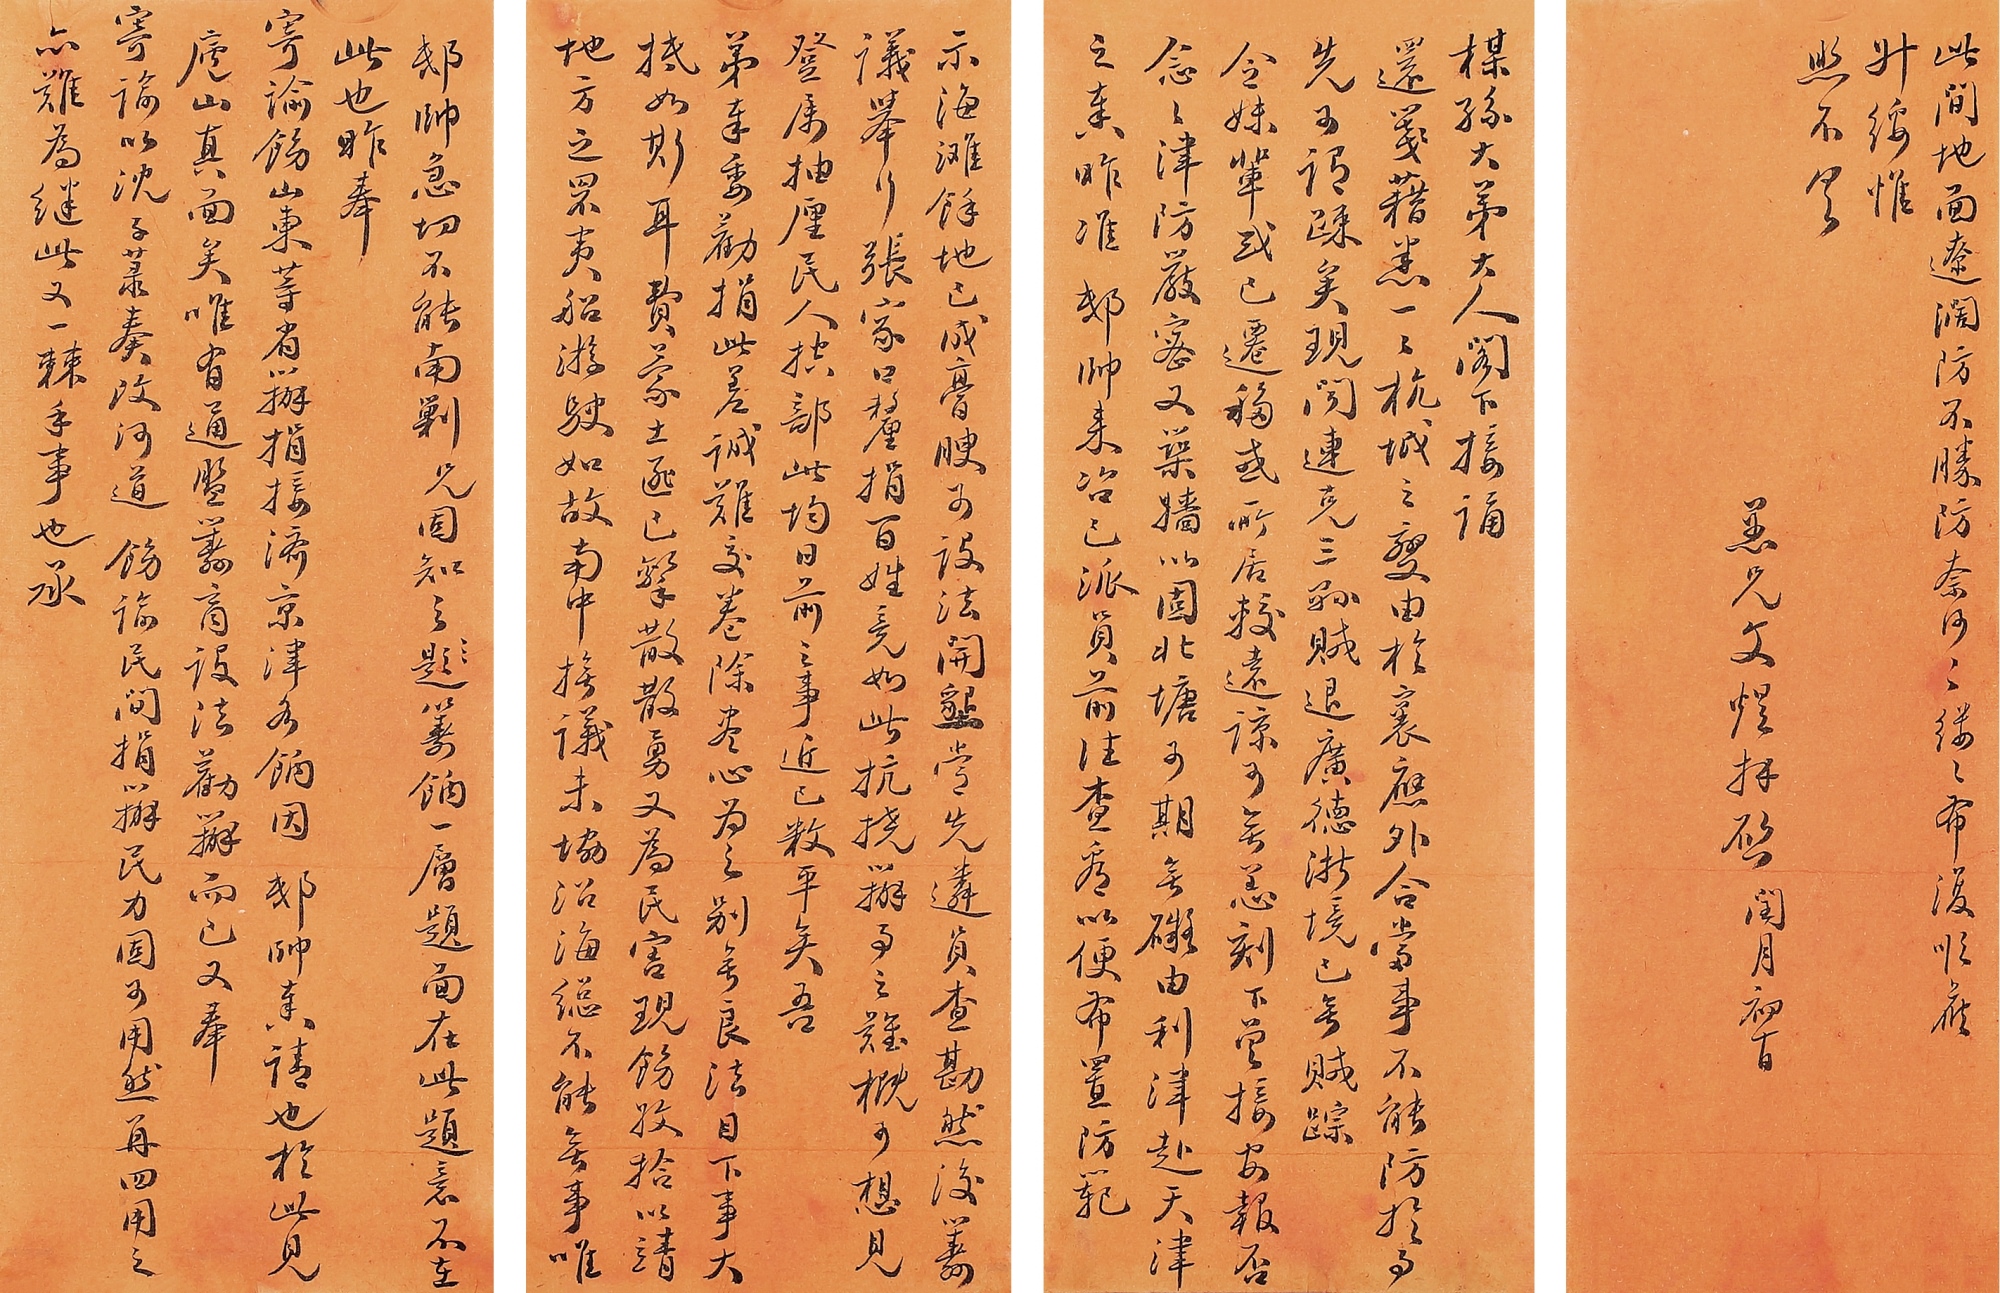 楳孫大弟大人閣下接誦
還箋藉悉一々杭城之變由於裏應外合當事不能防於事
先可謂疎矣現聞連克三縣賊退廣德浙境已無賊踪
令妹輩或已遷移或所居較遠諒可無恙刻下曾接安報否
念々津防嚴密又築牆以固北塘可期無礙由利津赴天津
之奏昨准 邸帥來咨已派員前往查看以便布置防範
邸帥急切不能南剿兄固知之々題籌餉一層題面在此題意不在
此也昨奉
寄諭飭山東等省辦捐接濟京津各餉因 邸帥奏請也於此見
廬山真面矣唯有通盤籌商設法勸辦而已又奉
寄諭以沈子奏改河道 飭諭民間捐辦民力固可用然再四用之
亦難為繼此又一棘手事也承
示海灘餘地已成膏腴可設法開墾當先遴員查勘然後籌
議舉行張家口釐捐百姓竟如此抗撓辦事之難概可想見
登屬抽厘民人控部此均日前之事近已敉平矣吾
弟奉委勸捐此差誠難交卷除盡心為之別無良法目下事大
抵如斯耳費蒙土匪已擊散散勇又為民害現飭收拾以靖
地方之累夷船游駛如故南中撫議未協沿海總不能無事唯
此間地面遼闊防不勝防奈何々縷々布復順候
升綏惟
照不具
愚兄文煜拜啟 閏月初